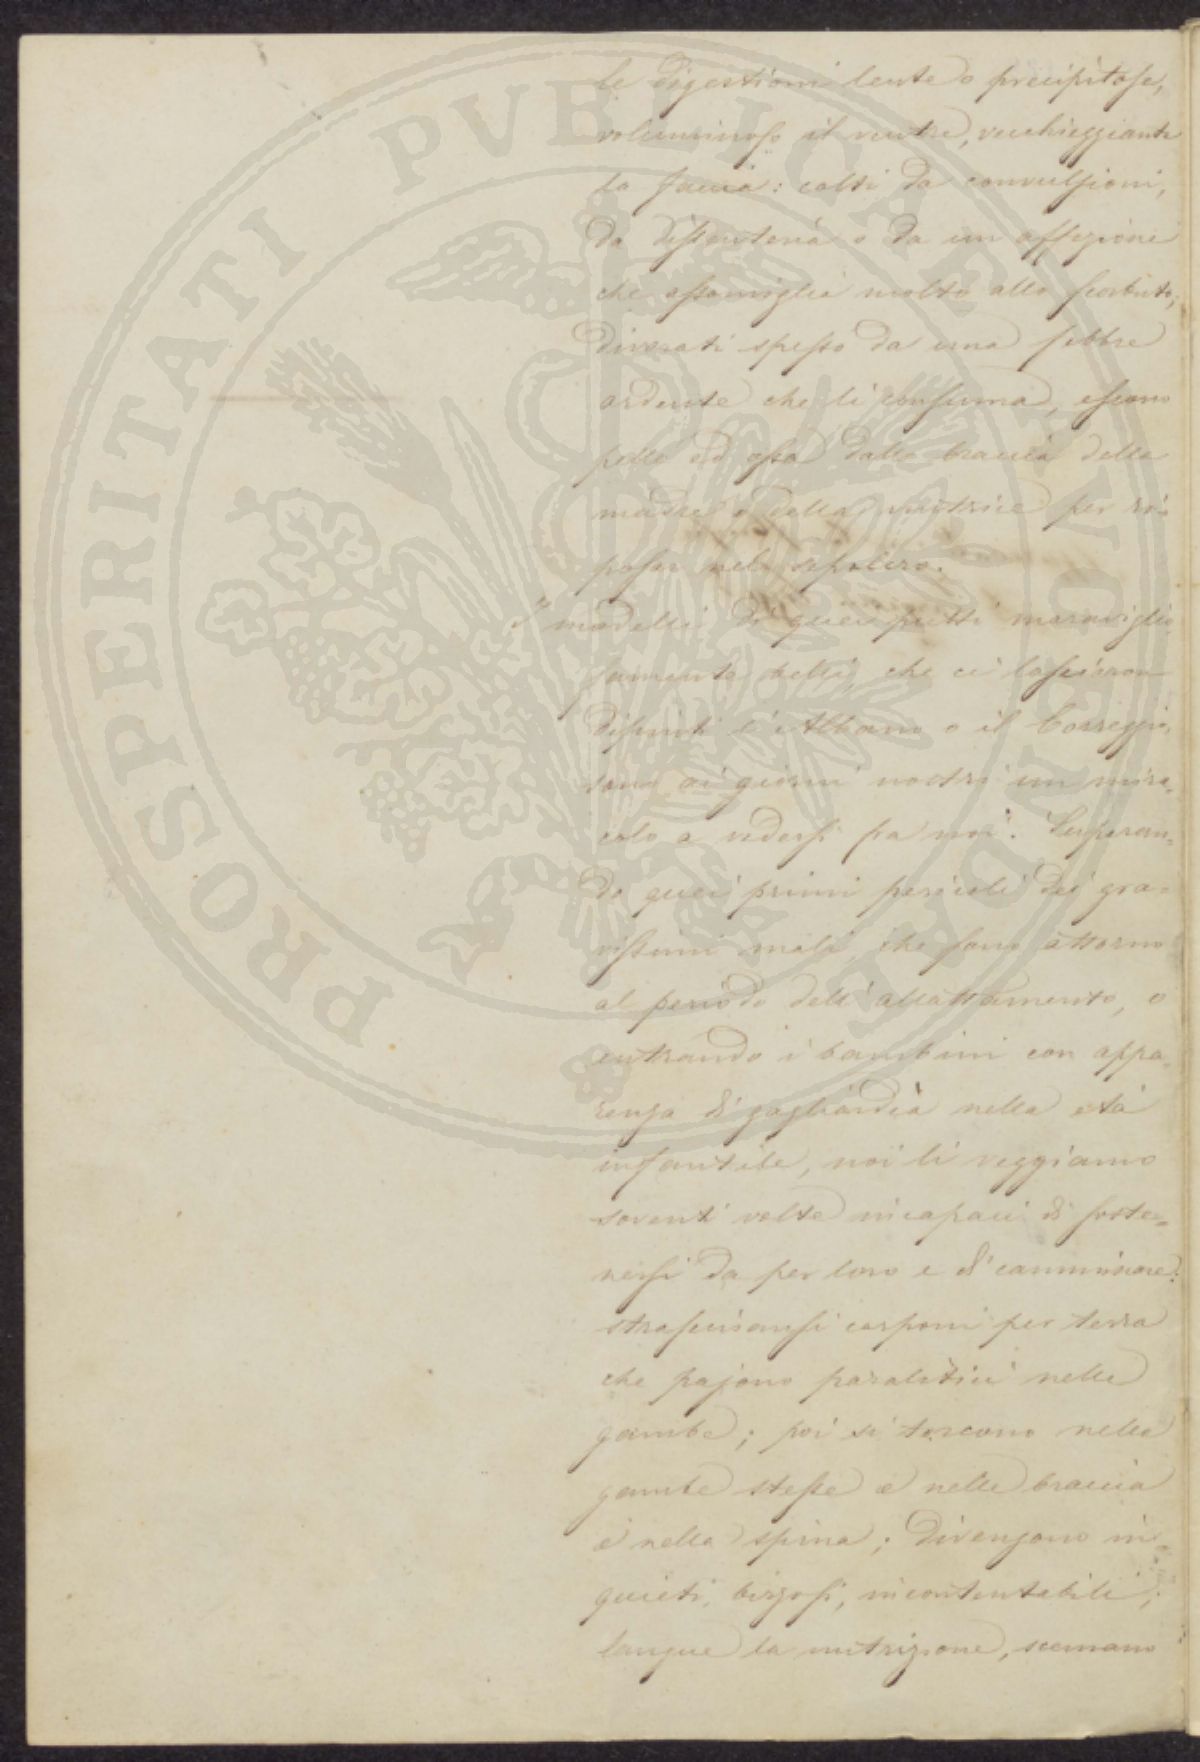 le digestioni lente o precipitose,
voluminoso il ventre, vecchieggiante
la faccia: colti da convulsioni,
da dissenteria o da un affezione
che assomiglia molto allo scorbuto;
divorati spesso da una febbre
ardente che li consuma, escono
pelle ed ossa dalle braccia della
madre o della nutrice per ri=
posar nel sepolcro.
I modelli di quei putti maraviglio
samente belli, che ci lasciaron
dipinti l'Albano o il Correggio,
sono ai giorni nostri un mira=
colo a vedersi fra noi. Superan=
do quei primi pericoli dei gra=
vissimi mali, che sono attorno
al periodo dell'allattamento, o
entrando i bambini con appa=
renza di gagliardia nella età
infantile, noi li veggiamo
soventi volte incapaci di soste=
nersi da per loro e di camminare:
strascinansi carponi per terra
che pajono paralitici nelle
gambe; poi si torcono nelle
gambe stesse e nelle braccia
e nella spina; divengono in=
quieti, bizzosi, incontentabili;
langue la nutrizione, scemano
PROSPERITATI PVBLICAE